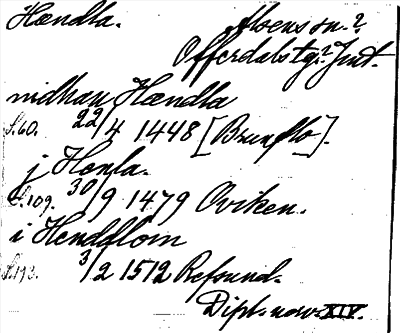 Hændla. Alsens sn.?
Offerdals tg.? Jmt.
nidhan Hændla
S. 60. 22/4 1448 [Brunflo].
j Henla.
S. 109. 30/9 1479 Oviken.
i Hendflom
S. 193. 3/2 1512 Refsund.
Dipl. norv. XIV.